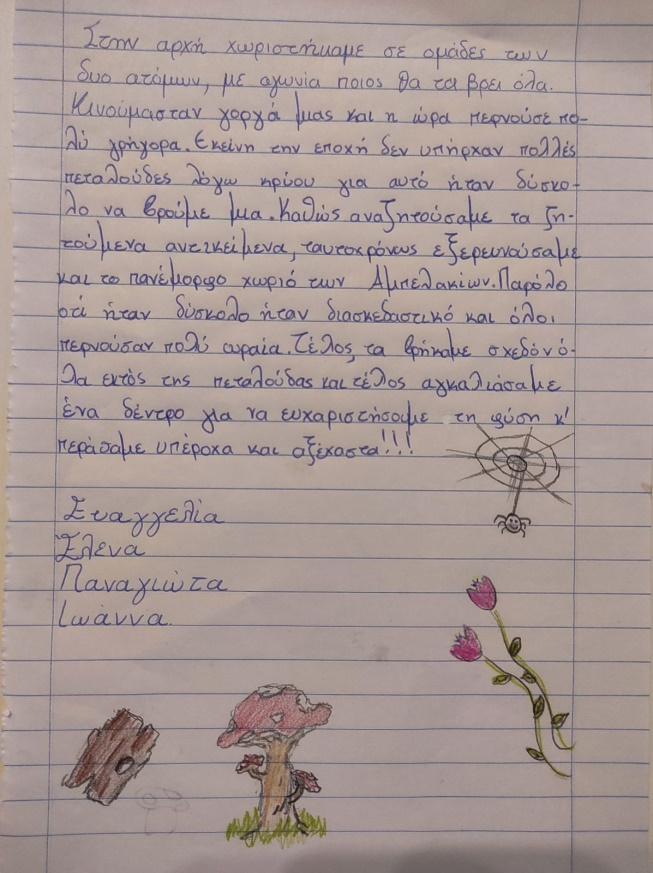 Στην αρχή χωριστήκαμε σε ομάδες των
δυο ατόμων, με αγωνία ποιος θα τα βρει όλα.
Κινούμασταν γοργά μας και η ώρα περνούσε πο-
λύ γρήγορα. Εκείνη την εποχή δεν υπήρχαν πολλές
πεταλούδες λόγω κρύου για αυτό ήταν δύσκο-
λο να βρούμε μια. Καθώς αναζητούσαμε τα ζη-
τούμενα αντικείμενα, ταυτοχρόνως εξερευνούσαμε
και το πανέμορφο χωριό των Αμπελακίων. Παρόλο
ότι ήταν δύσκολο ήταν διασκεδαστικό και όλοι
περνούσαν πολύ ωραία. Τέλος, τα βρήκαμε σχεδόν ό-
λα εκτός της πεταλούδας και τέλος αγκαλιάσαμε
ένα δέντρο για να ευχαριστήσουμε τη φύση κ'
περάσαμε υπέροχα και αξέχαστα!!!
Ευαγγελία
Έλενα
Παναγιώτα
Ιωάννα.